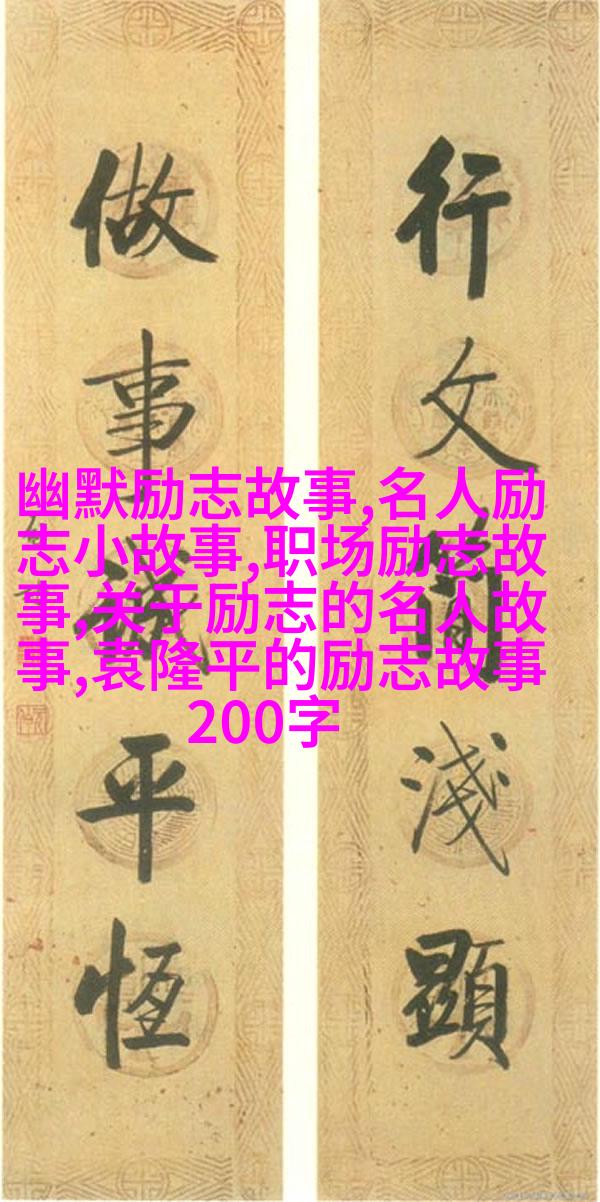 行文簡淺顯
做事誠平恆
幽默励志故事,名人励
志小故事,职场励志故
事,关于励志的名人故
事,袁隆平的励志故事
200字